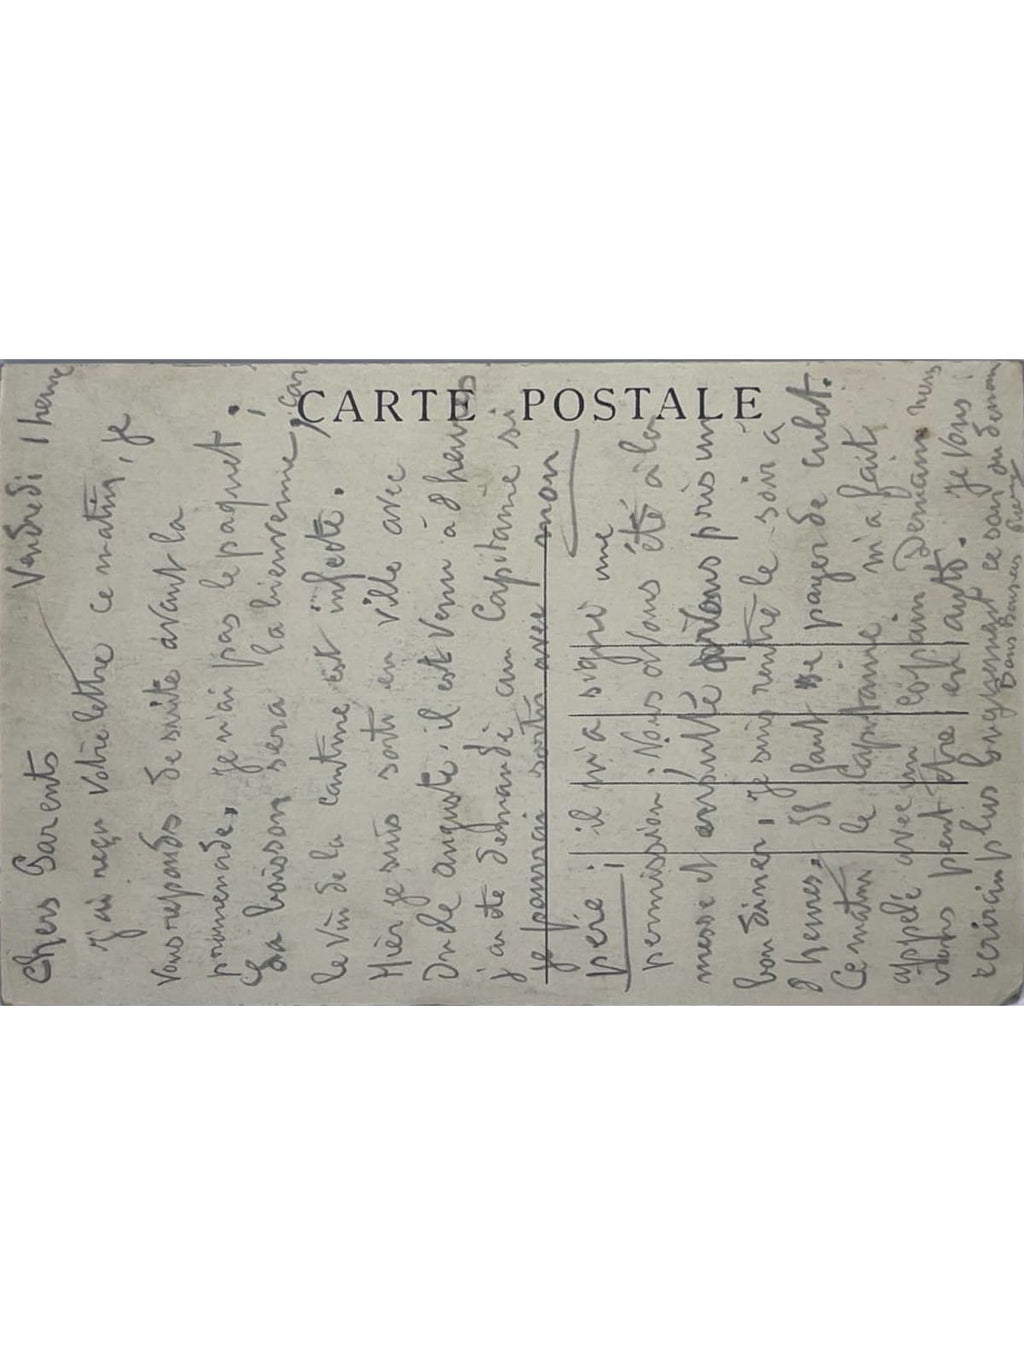 CARTE POSTALE
Chers Parents Vendredi 1 heure
J'ai reçu votre lettre ce matin, je
vous reponds de suite avant la
promenade. Je n'ai pas le paquet.
La boisson sera la bienvenue, car
le vin de la cantine est infecte.
Hier je suis sorti en ville avec
Oncle auguste. il est venu à 8 heures
j'ai demandé au Capitaine si
je pouvais sortir avec mon
père; il m'a signé une
permission. Nous avons été à la
messe et ensuite pris un
bon diner, je suis rentré le soir à
8 heures. Il faut se payer de culot.
Ce matin le Capitaine m'a fait
appelé avec un copain Demain nous
irons peut être en auto. Je vous
ecrirai plus longuement ce soir ou demain
Bons Baisers